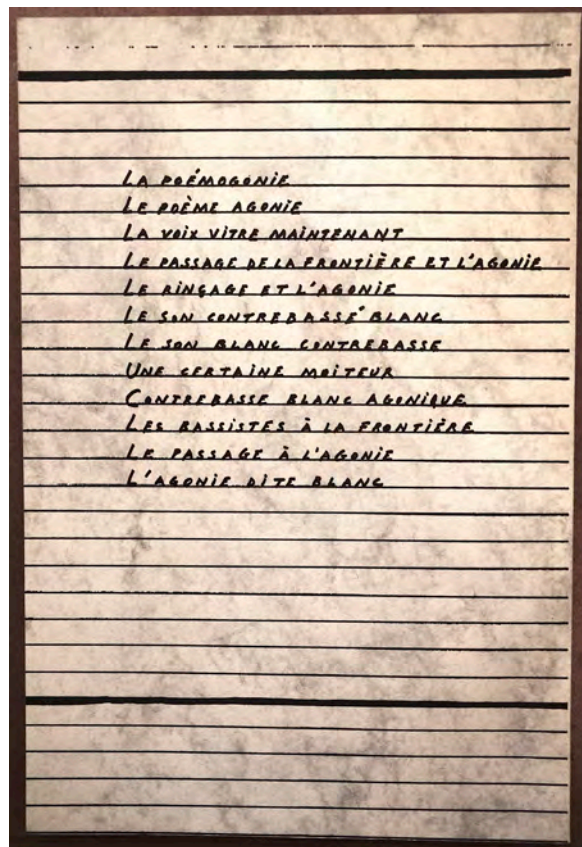 LA POÉMOGONIE
LE POÈME AGONIE
LA VOIX VITRE MAINTENANT
LE PASSAGE DE LA FRONTIÈRE ET L'AGONIE
LE RINÇAGE ET L'AGONIE
LE SON CONTREBASSÉ BLANC
LE SON BLANC CONTREBASSE
UNE CERTAINE MOITEUR
CONTREBASSE BLANC AGONIQUE
LES BASSISTES À LA FRONTIÈRE
LE PASSAGE À L'AGONIE
L'AGONIE DITE BLANC